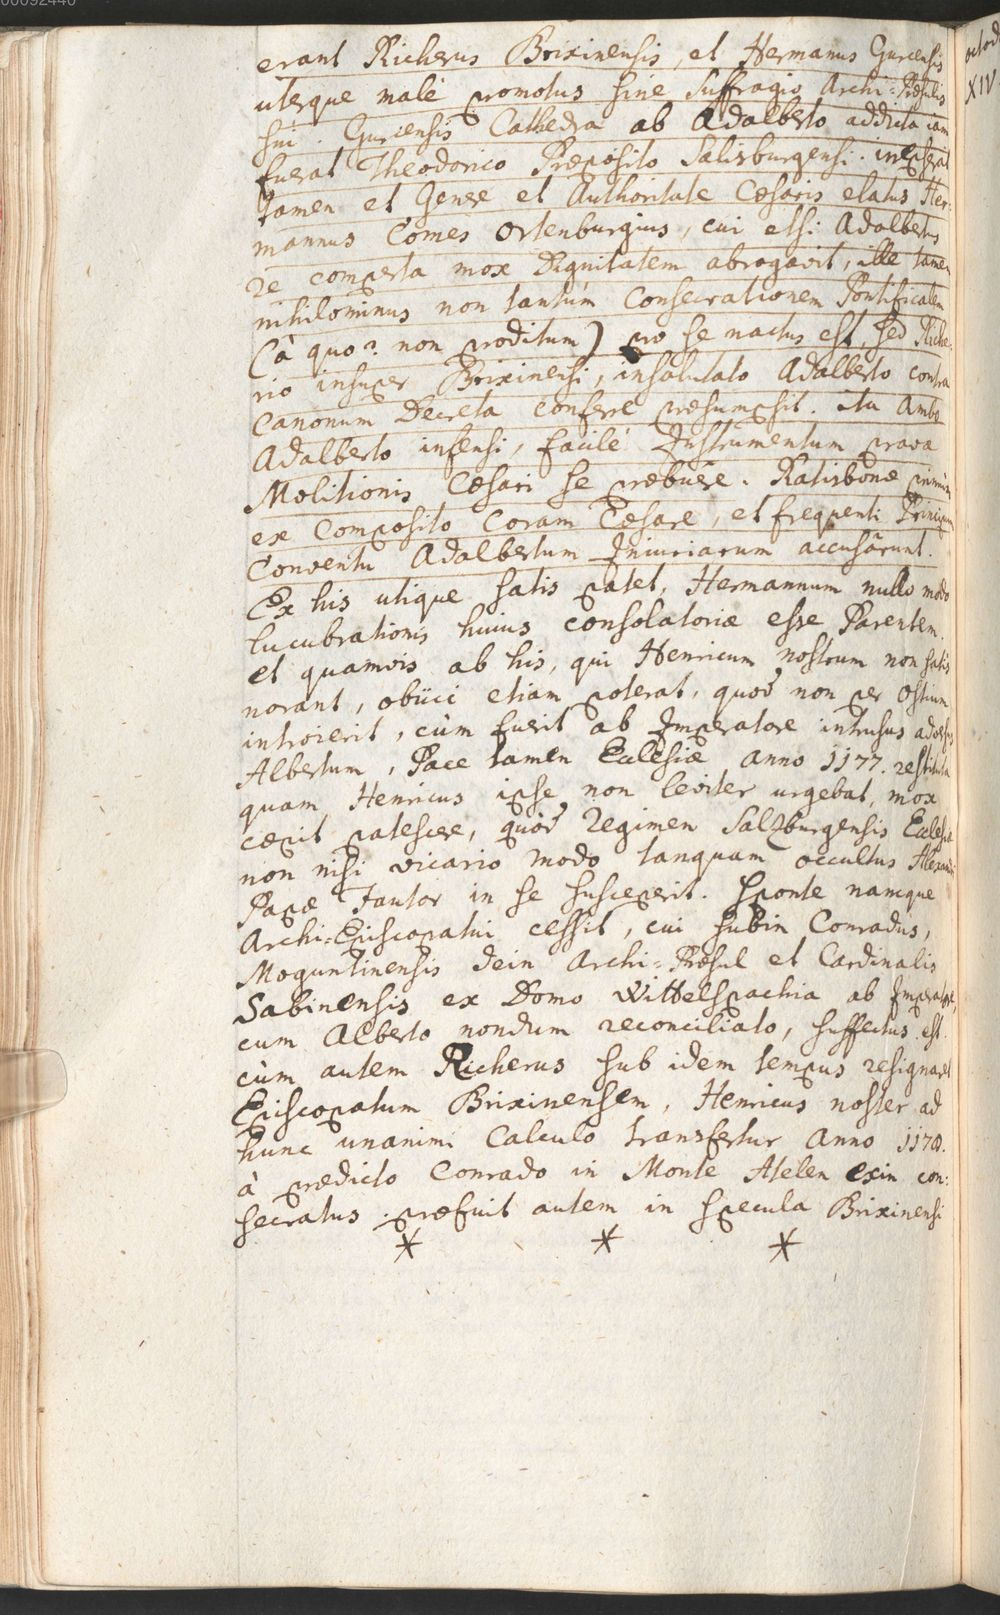 00092440
erant Richerus Brixinensis, et Hermanus Gurcensis
uterque malè promotus sine Suffragio Archi=Præsulis
sui. Gurcensis Cathedra ab Adalberto addicta iam
fuerat Theodorico Præposito Salisburgensi. irrepserat
tamen et Genere et Authoritate Cæsaris elatus Her=
mannus Comes Ortenburgius, cui etsi Adalbertus
re comperta mox Dignitatem abrogavit, ille tamen
nihilominus non tantùm Consecrationem Pontificalem
(à quo? non proditum) pro se nactus est, sed Riche=
rio insuper Brixinensi, insalutato Adalberto contra
Canonum Decreta conferre præsumpsit. ita Ambo
Adalberto infensi, facilè Instrumentum pravæ
Molitionis Cæsari se præbuêre. Ratisbonæ
ex Composito Coram Cæsare, et frequenti Principum
Conventu Adalbertum Iniuriarum accusârunt.
Ex his utique satis patet, Hermannum nullo modo
lucubrationis huius consolatoriæ esse Parentem.
et quamvis ab his, qui Henricum nostrum non satis
norant, obiici etiam poterat, quod non per Ostium
introierit, cùm fuerit ab Imperatore intrusus adversus
Albertum, Pace tamen Ecclesiæ anno 1177. restituta
quam Henricus ipse non leviter urgebat, mox
cæpit patescere, quòd Regimen Salzburgensis Ecclesiæ
non nisi vicario modo tanquam occultus Alexandri
Papæ Fautor in se susceperit. Sponte namque
Archi=Episcopatui cessit, cui subin Conradus,
Moguntinensis dein Archi=Præsul et Cardinalis
Sabinensis ex Domo Wittelspachia ab Imperatore,
cum Alberto nondum reconciliato, suffectus est.
cùm autem Richerus sub idem tempus resignaret
Episcopatum Brixinensem, Henricus noster ad
hunc unanimi Calculo transfertur Anno 1178.
à prædicto Conrado in Monte Atelen exin con=
secratus. præfuit autem in specula Brixinensi
* * *
XIV